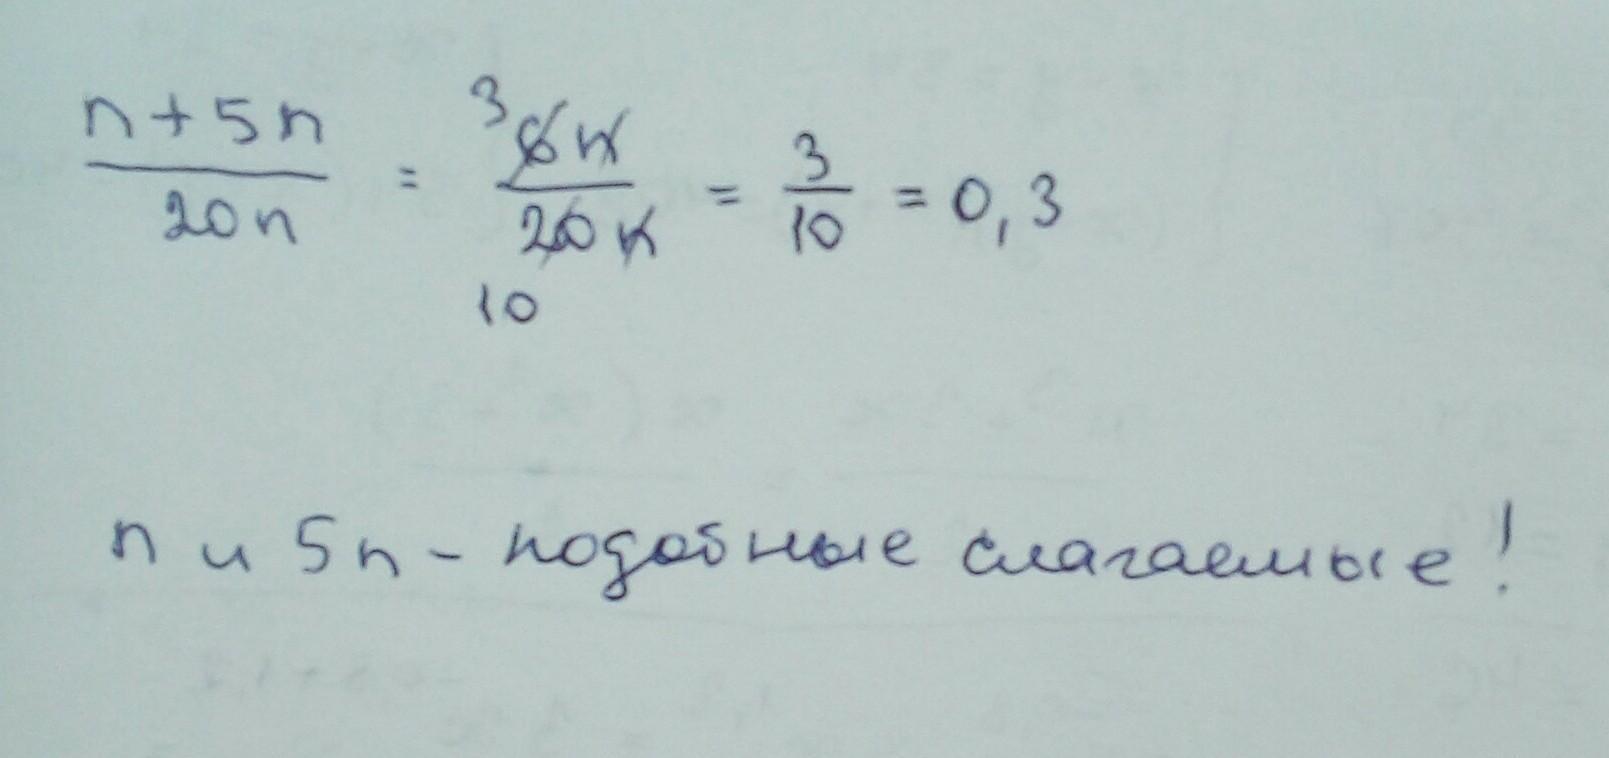 n + 5n / 20n = ³6n / 20n 10 = 3/10 = 0,3
n и 5n - подобные слагаемые!